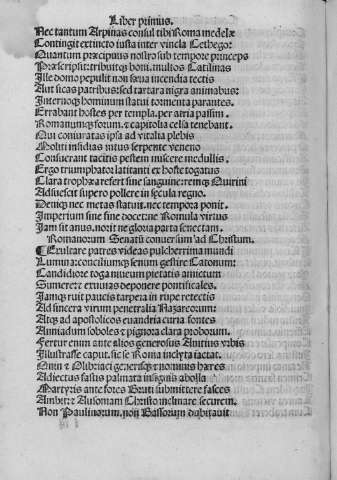 Liber primus.
Nec tantum Arpinas consul tibi Roma medelæ
Contingit extincto iusta inter vincla Cethego:
Quantum præcipuus nostro sub tempore princeps
Præscripsit: tribuitq; boni. multos Catilinas
Ille domo pepulit non sæua incendia tectis
Aut sicas patribus: sed tartara nigra animabus:
Internoq; hominum statui tormenta parantes.
Errabant hostes per templa. per atria passim.
Romanumq; forum. et capitolia celsa tenebant.
Qui coniuratas ipsa ad vitalia plebis
Moliti insidias intus serpente veneno
Consuerant tacitis pestem miscere medullis.
Ergo triumphator latitanti ex hoste togatus
Clara trophæa refert sine sanguine: remq; Quirini
Adsuescit supero pollere in secula regno.
Deniq; nec metas statuit. nec tempora ponit.
Imperium sine fine docet: ne Romula virtus
Iam sit anus. norit ne gloria parta senectam.
Romanorum Senatū conuersum ad Christum.
¶ Exultare patres videas pulcherrima mundi
Lumina: conciliumq; senum gestire Catonum:
Candidiore toga niueum pietatis amictum
Sumere: et exuuias deponere pontificales.
Iamq; ruit paucis tarpeia in rupe relectis
Ad sincera virum penetralia Nazareorum:
Atq; ad apostolicos euandria curia fontes
Anniadum soboles et pignora clara proborum.
Fertur enim ante alios generosus Anitius vrbis
Illustrasse caput. sic se Roma inclyta iactat.
Quin et Olibriaci generisq; et nominis hæres
Adiectus fastis palmata insignis abolla
Martyris ante fores Bruti submittere fasces
Ambit: et Ausoniam Christo inclinare securem.
Non Paulinorum. non Bassorum dubitauit